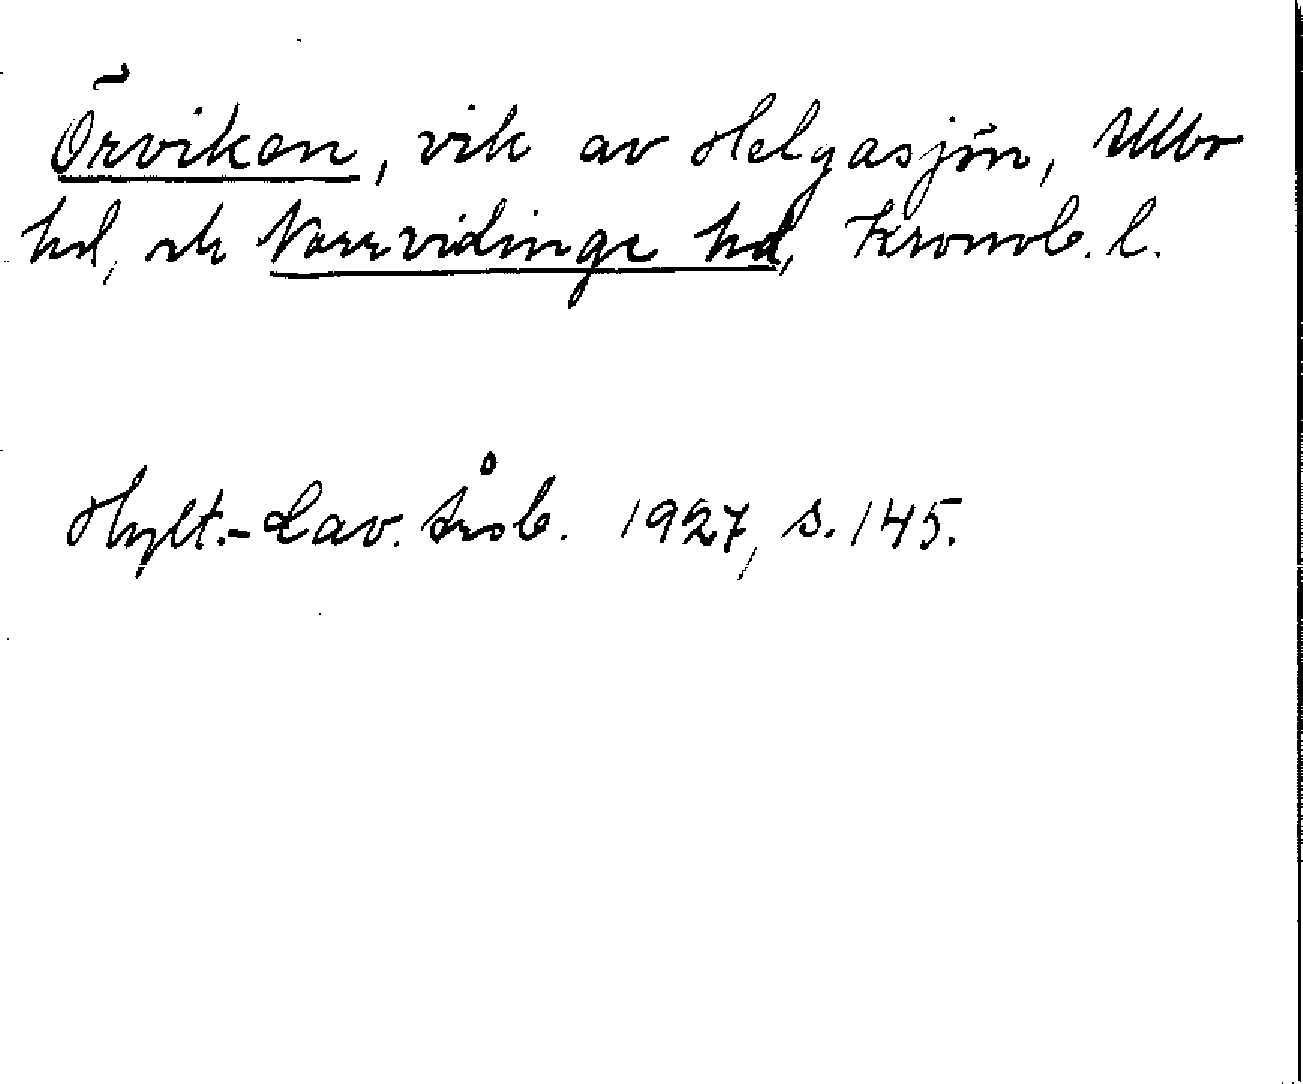 Örviken, vik av Helgasjön, Allbo
hd, ok Norrvidinge hd, Kronob. l.
Hylt.-Cav. årsb. 1927, s. 145.